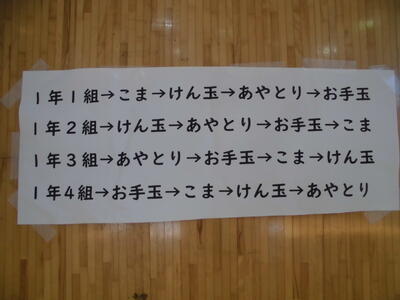 1年1組→こま→けん玉→あやとり→お手玉
1年2組→けん玉→あやとり→お手玉→こま
1年3組→あやとり→お手玉→こま→けん玉
1年4組→お手玉→こま→けん玉→あやとり